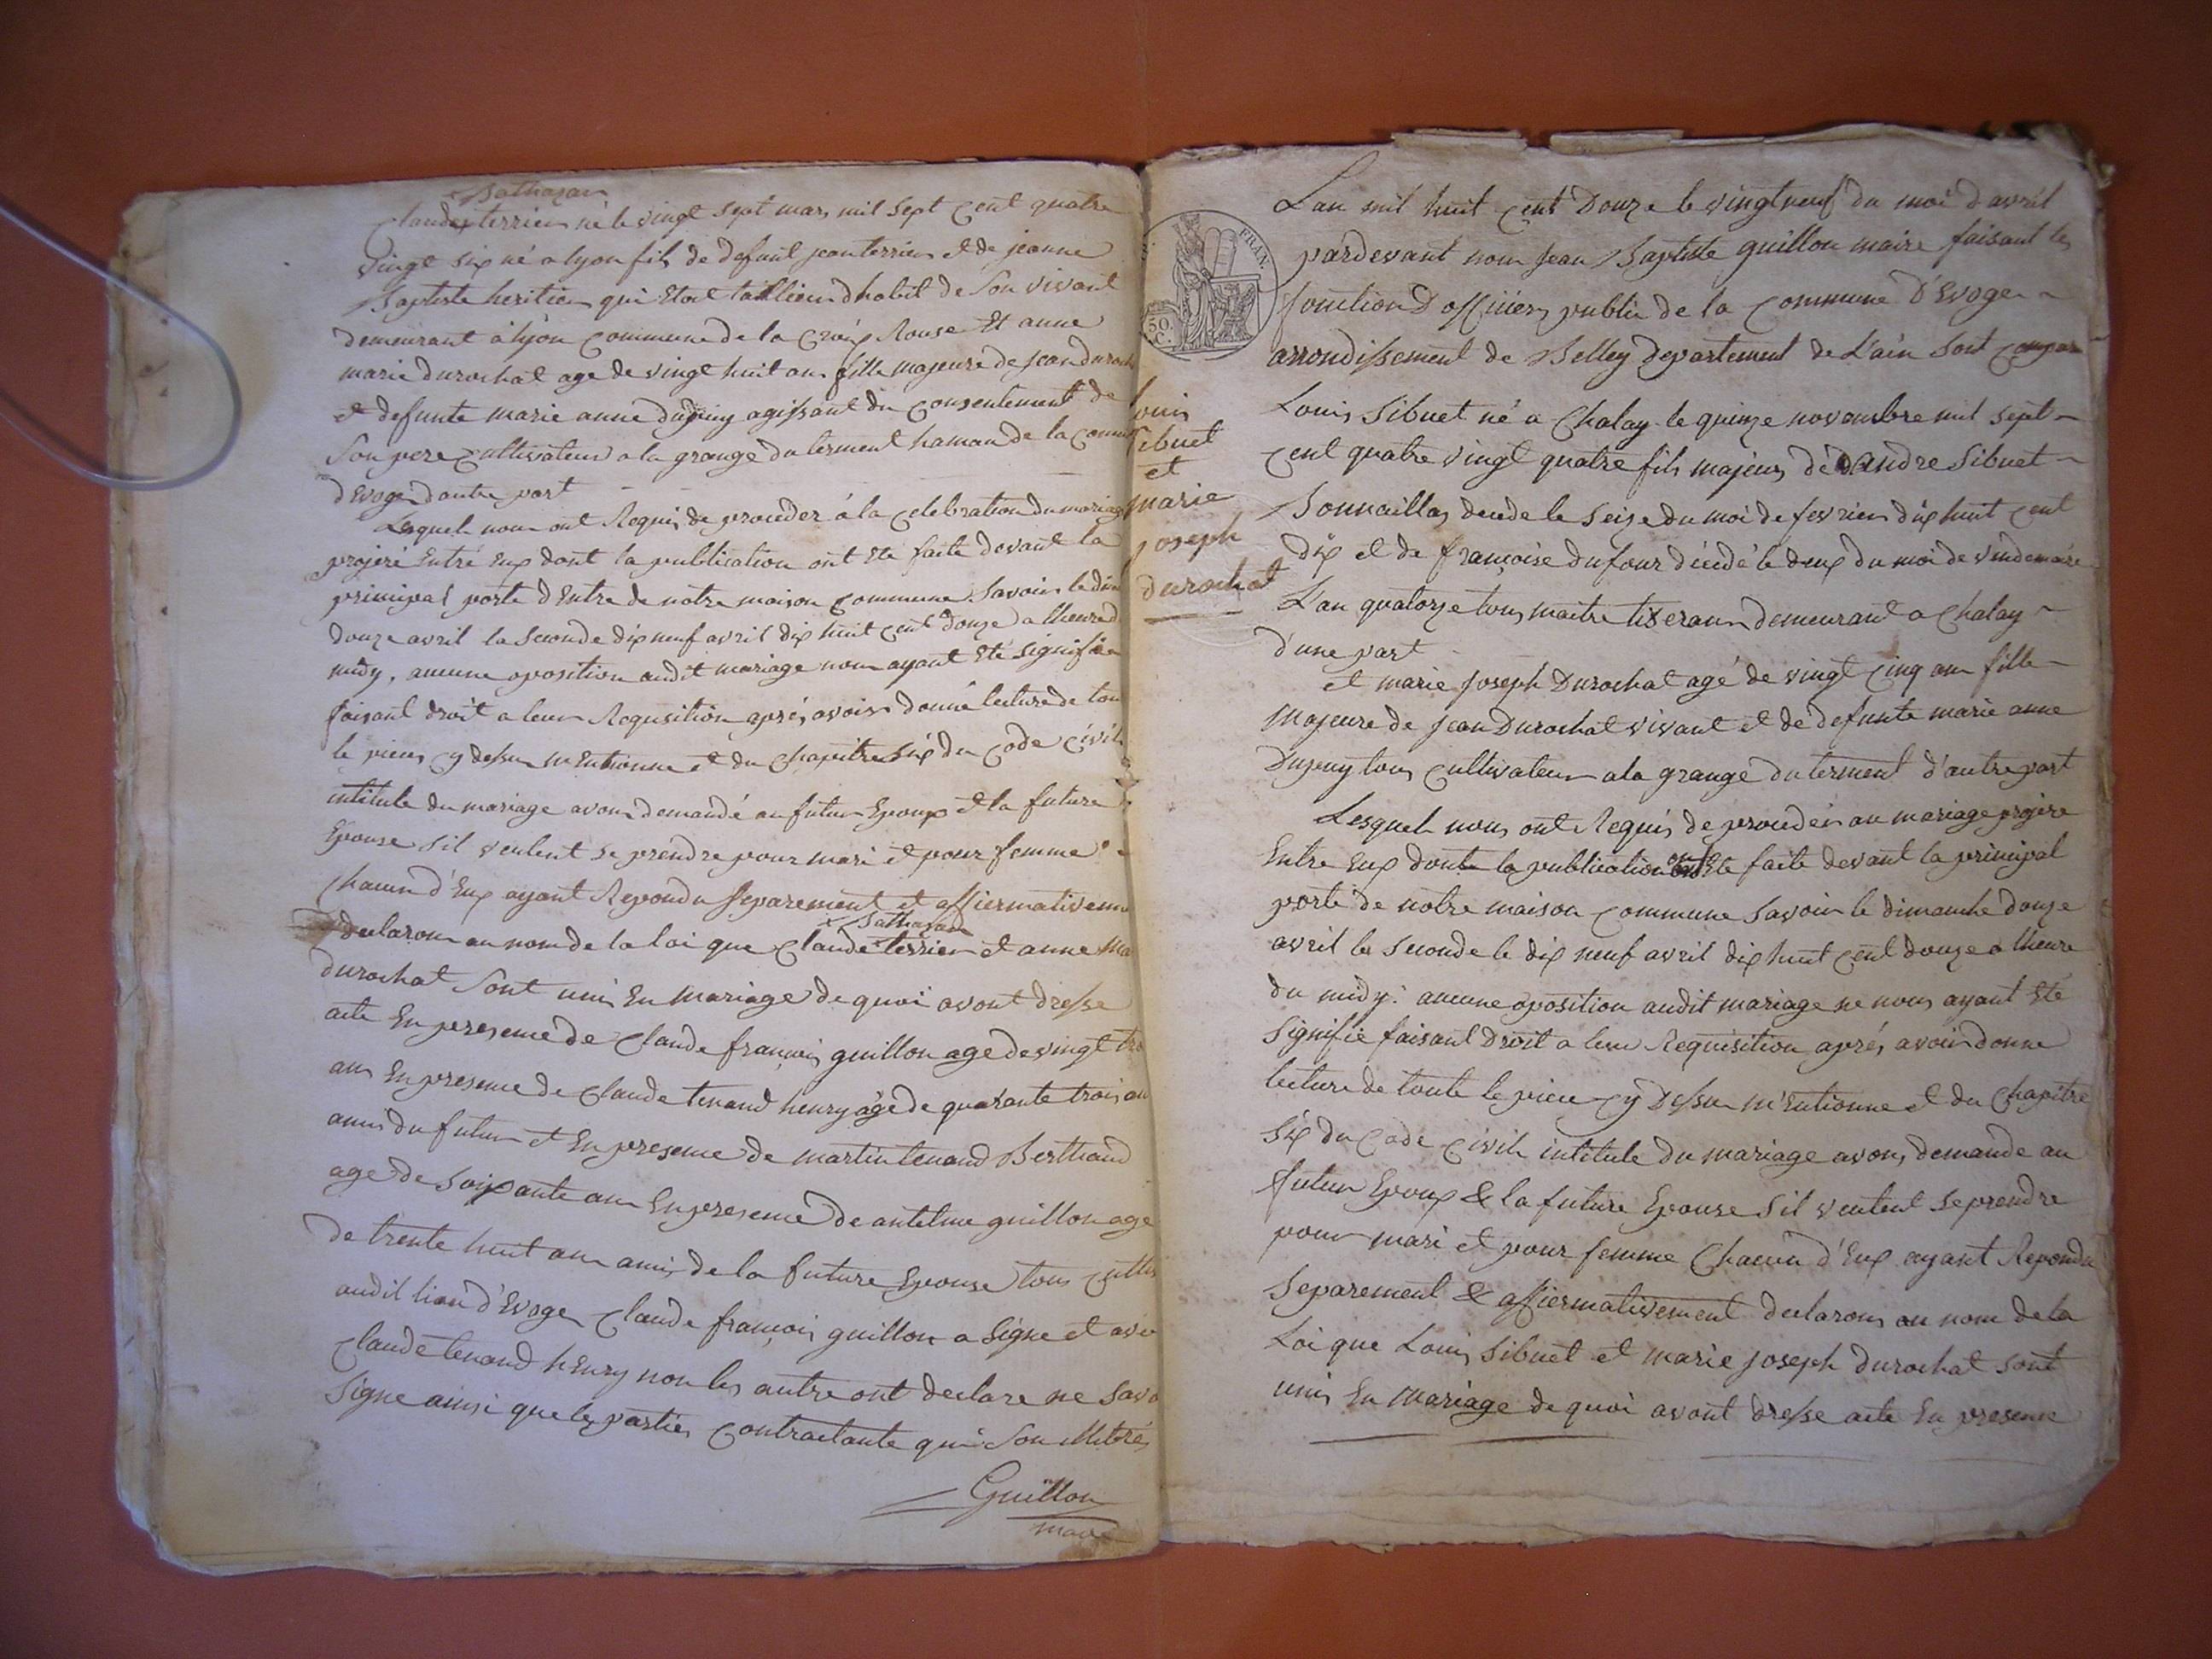 Bathazar
Claude x terrier né le vingt sept mars mil sept cent quatre
vingt six né a lyon fils de defunt jean terrier et de jeanne
Baptiste heritier qui etoit taillieur dhabit de Son vivant
demeurant à lyon Commune de la Croix Rouse Et anne
marie durochat age de vingt huit ans fille majeure de jean duroch
et defunte marie anne dupuy agissant du Consentement de
Son pere Cultivateur a la grange du terment hamau de la Comm
d'Evoge d'autre part
Lesquels nous ont Requis de proceder á la Celebration du mariage
projeré Entre Eux dont la publication ont Eté faite devant la
principal porte d'Entre de notre maison Commune Savoir le dim
douze avril la Seconde dix neuf avril dix huit Cent douze a lheure d
midy, aucune oposition audit mariage nous ayant Eté Signifié
faisant droit a leur Requsition aprés avoir donné lecture de tou
le pieces cy dessus mEntionne et du Chapitre Six du Code Civil
intitule du mariage avons demandé au futur Epoux et la future
Epouse Sil veulent Se prendre pour mari et pour femme
Chacun d'Eux ayant Repondu Separement et affiermativeme
x Bathazar
declarons au nom de la loi que Claude terrier et anne Ma
durochat Sont unis En Mariage de quoi avont dresse
acte En presence de Claude françois guillon age de vingt tro
ans En presence de Claude tenand henry âge de quarante trois an
amis du futur et En presence de martin tenand Berthand
age de Soixante ans En presence de antelme guillon age
de trente huit ans amis de la future Epouse tous Culti
audit lieu d'Evoge Claude françois guillon a Signe et ave
Claude tenand hEnry non les autre ont declare ne Savo
Signe ainsi que les parties Contractante qui Son illitrés
Guillon
maire
FRAN.
50
C.
Louis
Sibuet
et
marie
joseph
durochat
L'an mil huit Cent Douze le vingt neuf du moi d'avril
pardevant nous Jean Baptiste guillon maire faisant les
fonction D'officier public de la Commune D'Evoge
arrondissement de Belley departement de L'ain Sont Compar
Louis Sibuet né a Chalay le quinze novembre mil Sept
Cent quatre vingt quatre fils majeur de andre Sibuet
Bonnaillas decede le Seize du moi de fevrier dix huit Cent
dix et de françoise dufour décédé le deux du moi de vindemaire
L'an quatorze tous maitre tiseran demeurant a Chalay
d'une part
et marie Joseph Durochat agé de vingt Cinq ans fille
Majeure de Jean Durochat vivant et de defunte marie anne
Dupuy tous Cultivateur a la grange du terment d'autre part
Lesquels nous ont Requis de proceder au mariage projéré
Entre Eux dont la publication ont Eté faite devant la principal
porte de notre maison Commune Savoir le dimanche douze
avril la Seconde le dix neuf avril dix huit Cent douze a lheure
du midy: aucune oposition audit mariage ne nous ayant Eté
Signifié faisant Droit a leur Requisition aprés avoir donne
lecture de toute le piece cy Dessus m'Entionne et du Chapitre
Six du Code Civil intitule du mariage avons demande au
futur Epoux & la future Epouse Sil veulent Se prendre
pour mari et pour femme Chacun d'Eux ayant Repondu
Separement & affiermativement declarons au nom de la
Loi que Louis Sibuet et marie joseph durochat Sont
unis En Mariage de quoi avont dresse acte En presence